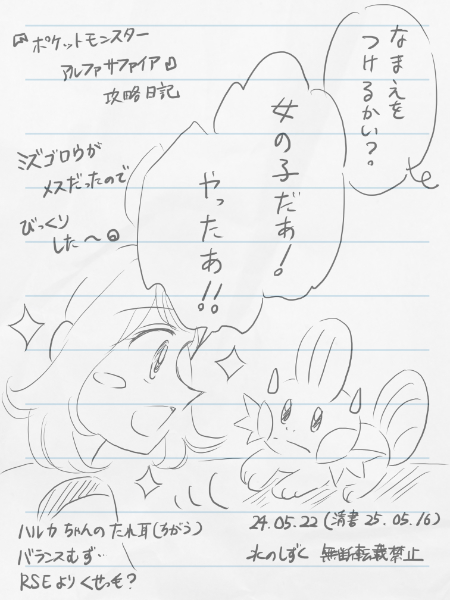 『ポケットモンスター
アルファサファイア』
攻略日記
なまえを
つけるかい?。
女の子だあ!
やったあ!!
ミズゴロウが
メスだったので
びっくり
した〜
ハルカちゃんのたれ耳(ちがう)
バランスむず…
RSEよりくせっも?
24.05.22(清書 25.05.16)
水のしずく 無断転載禁止